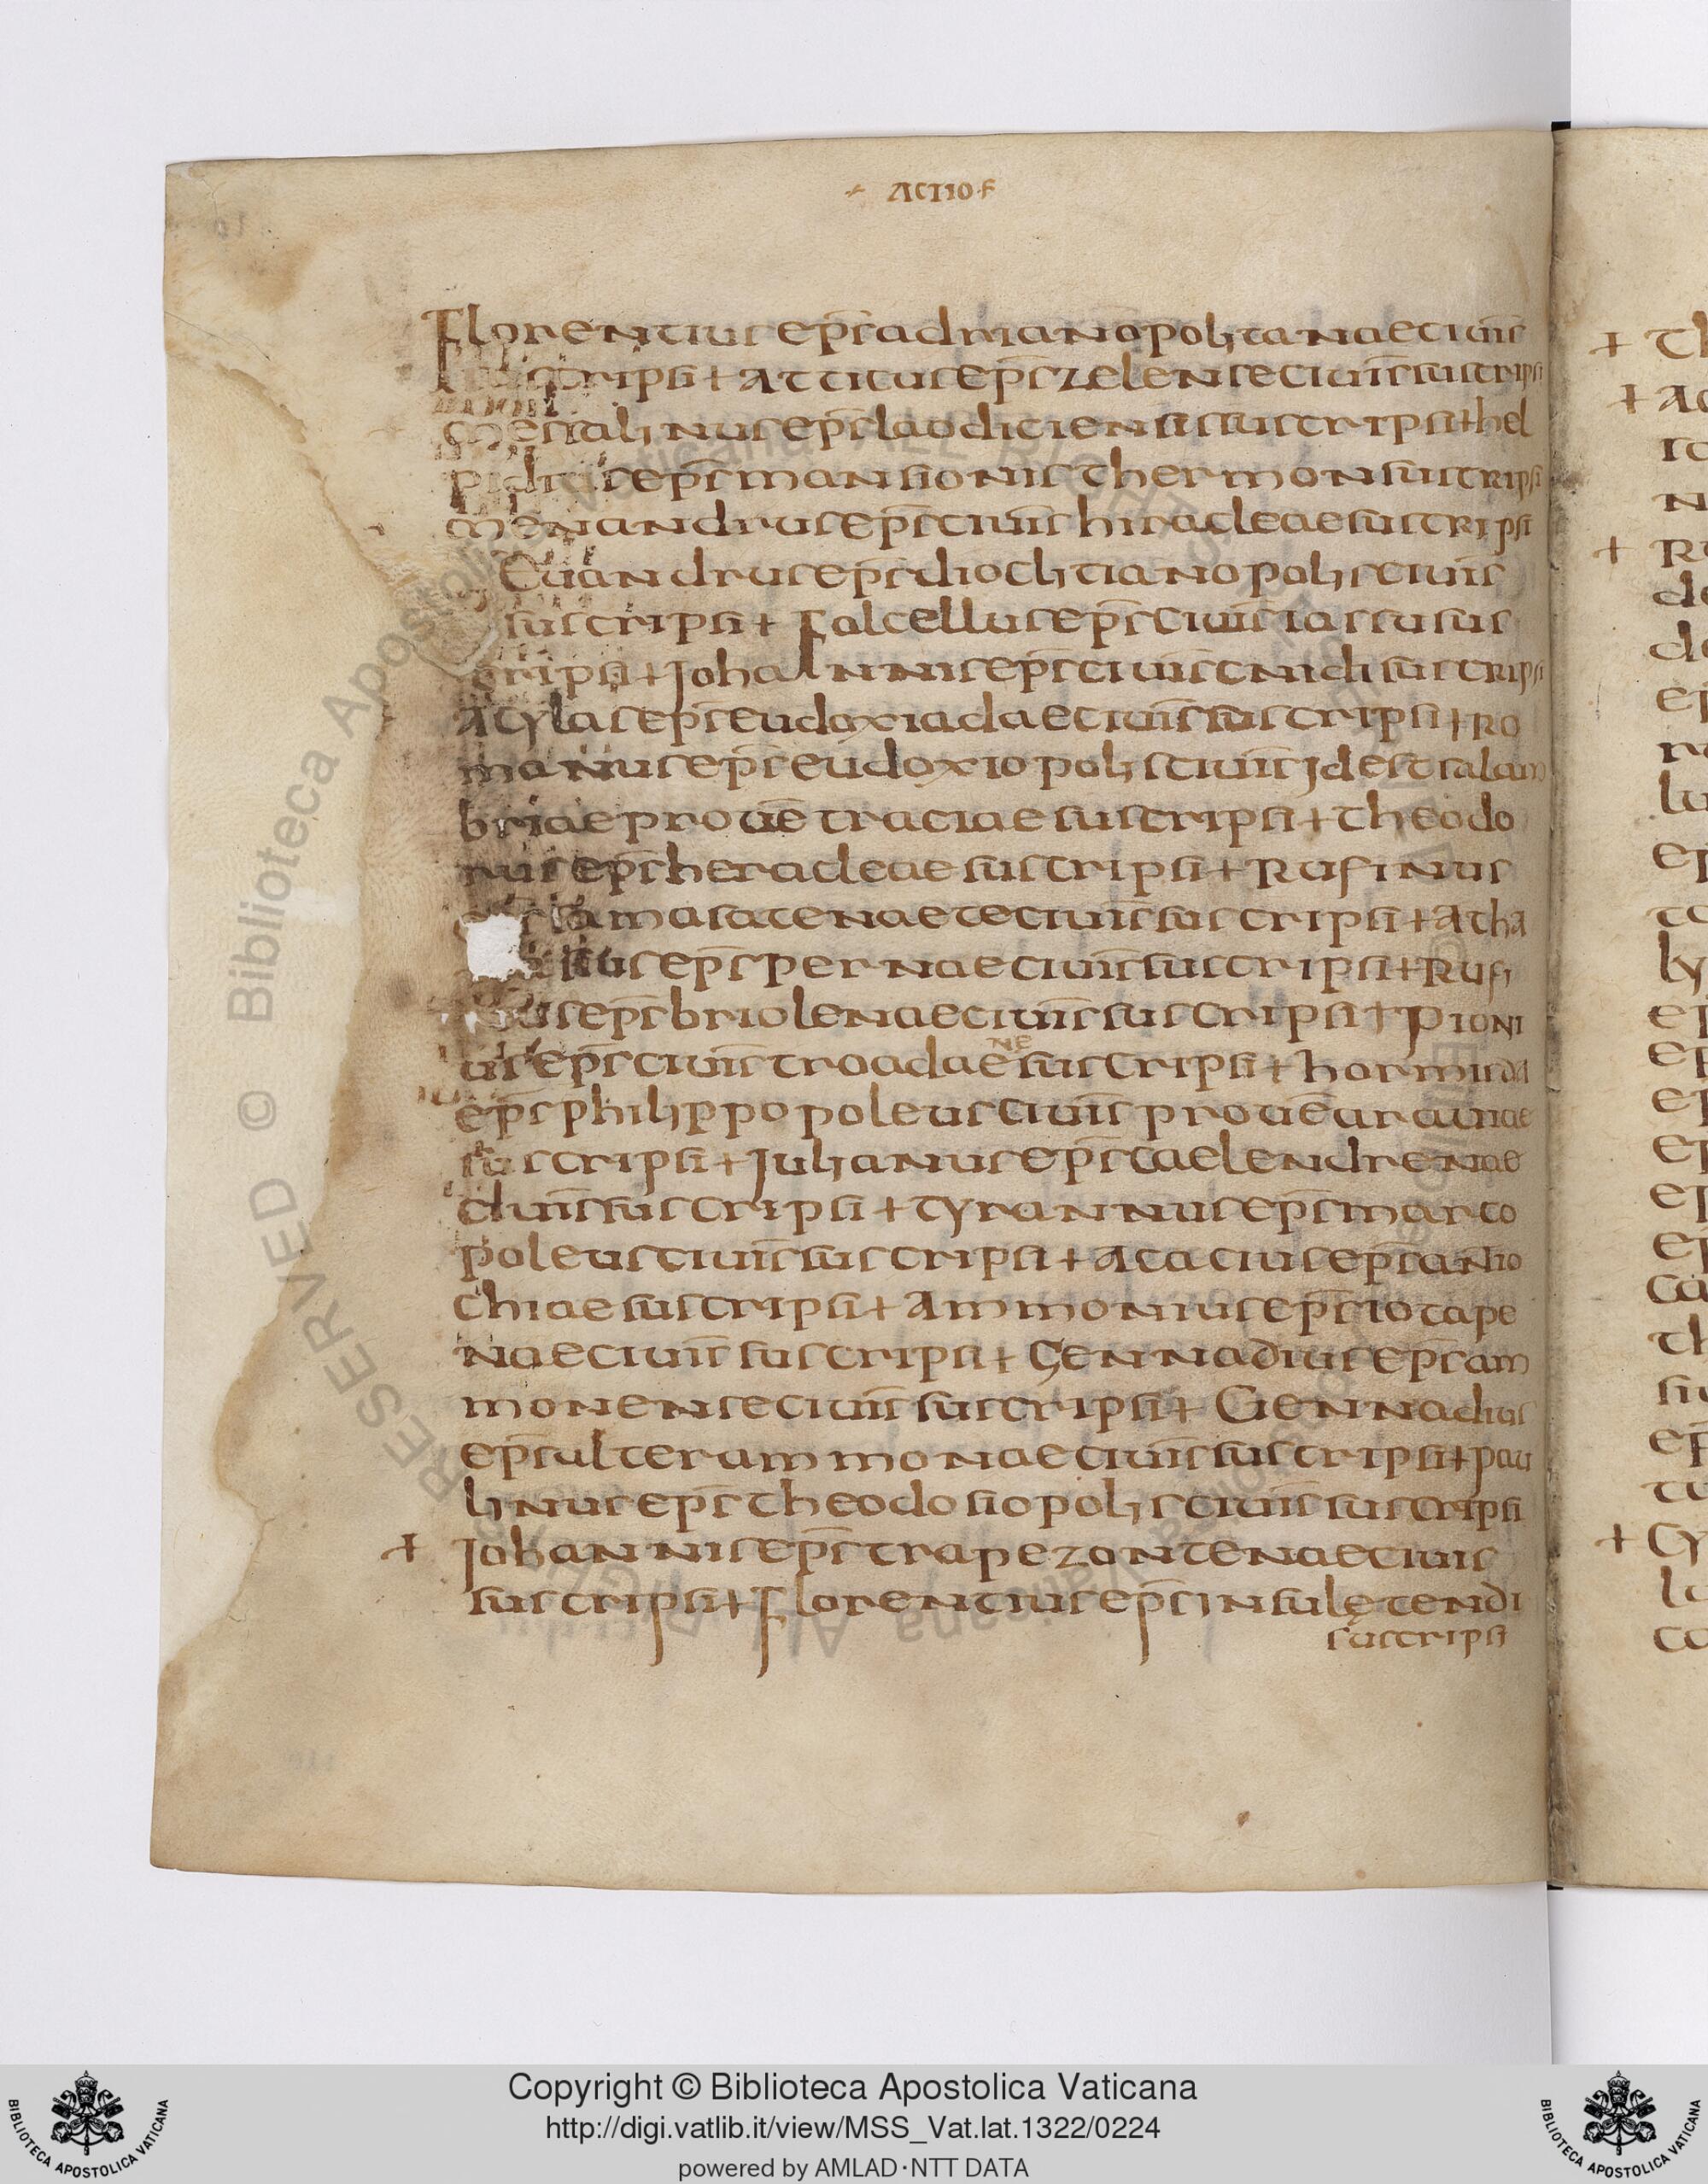 + ACTIO F
Florentius ep̄s adrianopolitanae ciuīs
suscripsi + Atticus ep̄s zelense ciuīs suscripsi
messalinus ep̄s laodiciensis suscripsi + hel
pidius ep̄s mansionis thermon suscripsi
menandrus ep̄s ciuīs hiracleae suscripsi
Euandrus ep̄s dioclitianopolis ciuis
suscripsi + Falcellus ep̄s ciuīs iassu sus
cripsi + Johannis ep̄s ciuīs cnidi suscripsi
Atylas ep̄s eudoxiadae ciuīs suscripsi + Ro
manus ep̄s eudoxiopolis ciuīs id est salam
briae prouē traciae suscripsi + Theodo
rus ep̄s heracleae suscripsi + Rufinus
samosatenae te ciuīs suscripsi + Atha
ep̄s pernae ciuīs suscripsi + Rufi
nus ep̄s briolenae ciuīs suscripsi + Pioni
us ep̄s ciuīs troadaene suscripsi + hormisda
ep̄s philippopoleus ciuīs prouē arauiae
suscripsi + Julianus ep̄s caelendrenae
ciuīs suscripsi + Tyrannus ep̄s marco
poleus ciuīs suscripsi + Acacius ep̄s antio
chiae suscripsi + Ammonius ep̄s iotape
nae ciuīs suscripsi + Gennadius ep̄s am
monense ciuīs suscripsi + Gennadius
ep̄s alterammonae ciuīs suscripsi + pau
linus ep̄s theodosiopolis ciuīs suscripsi
+ Johannis ep̄s trapezontenae ciuis
suscripsi + Florentius ep̄s insulę tendi
suscripsi
Copyright © Biblioteca Apostolica Vaticana
http://digi.vatlib.it/view/MSS_Vat.lat.1322/0224
powered by AMLAD·NTT DATA
BIBLIOTECA APOSTOLICA VATICANA
BIBLIOTECA APOSTOLICA VATICANA